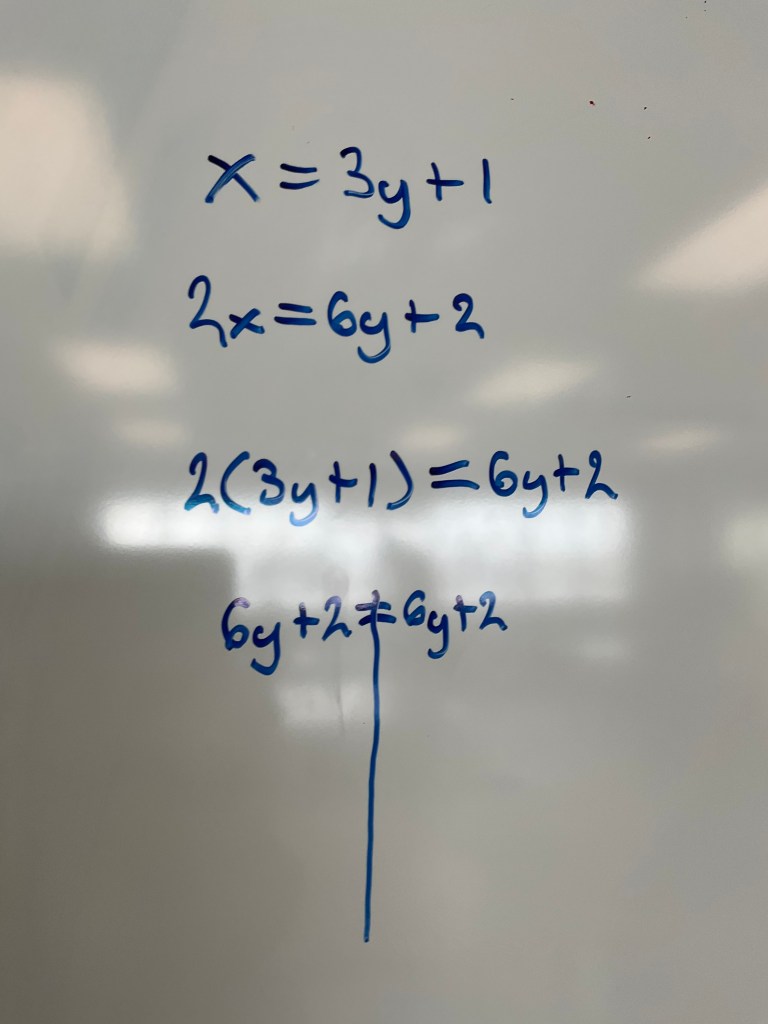 x = 3y + 1
2x = 6y + 2
2(3y + 1) = 6y + 2
6y + 2 = 6y + 2